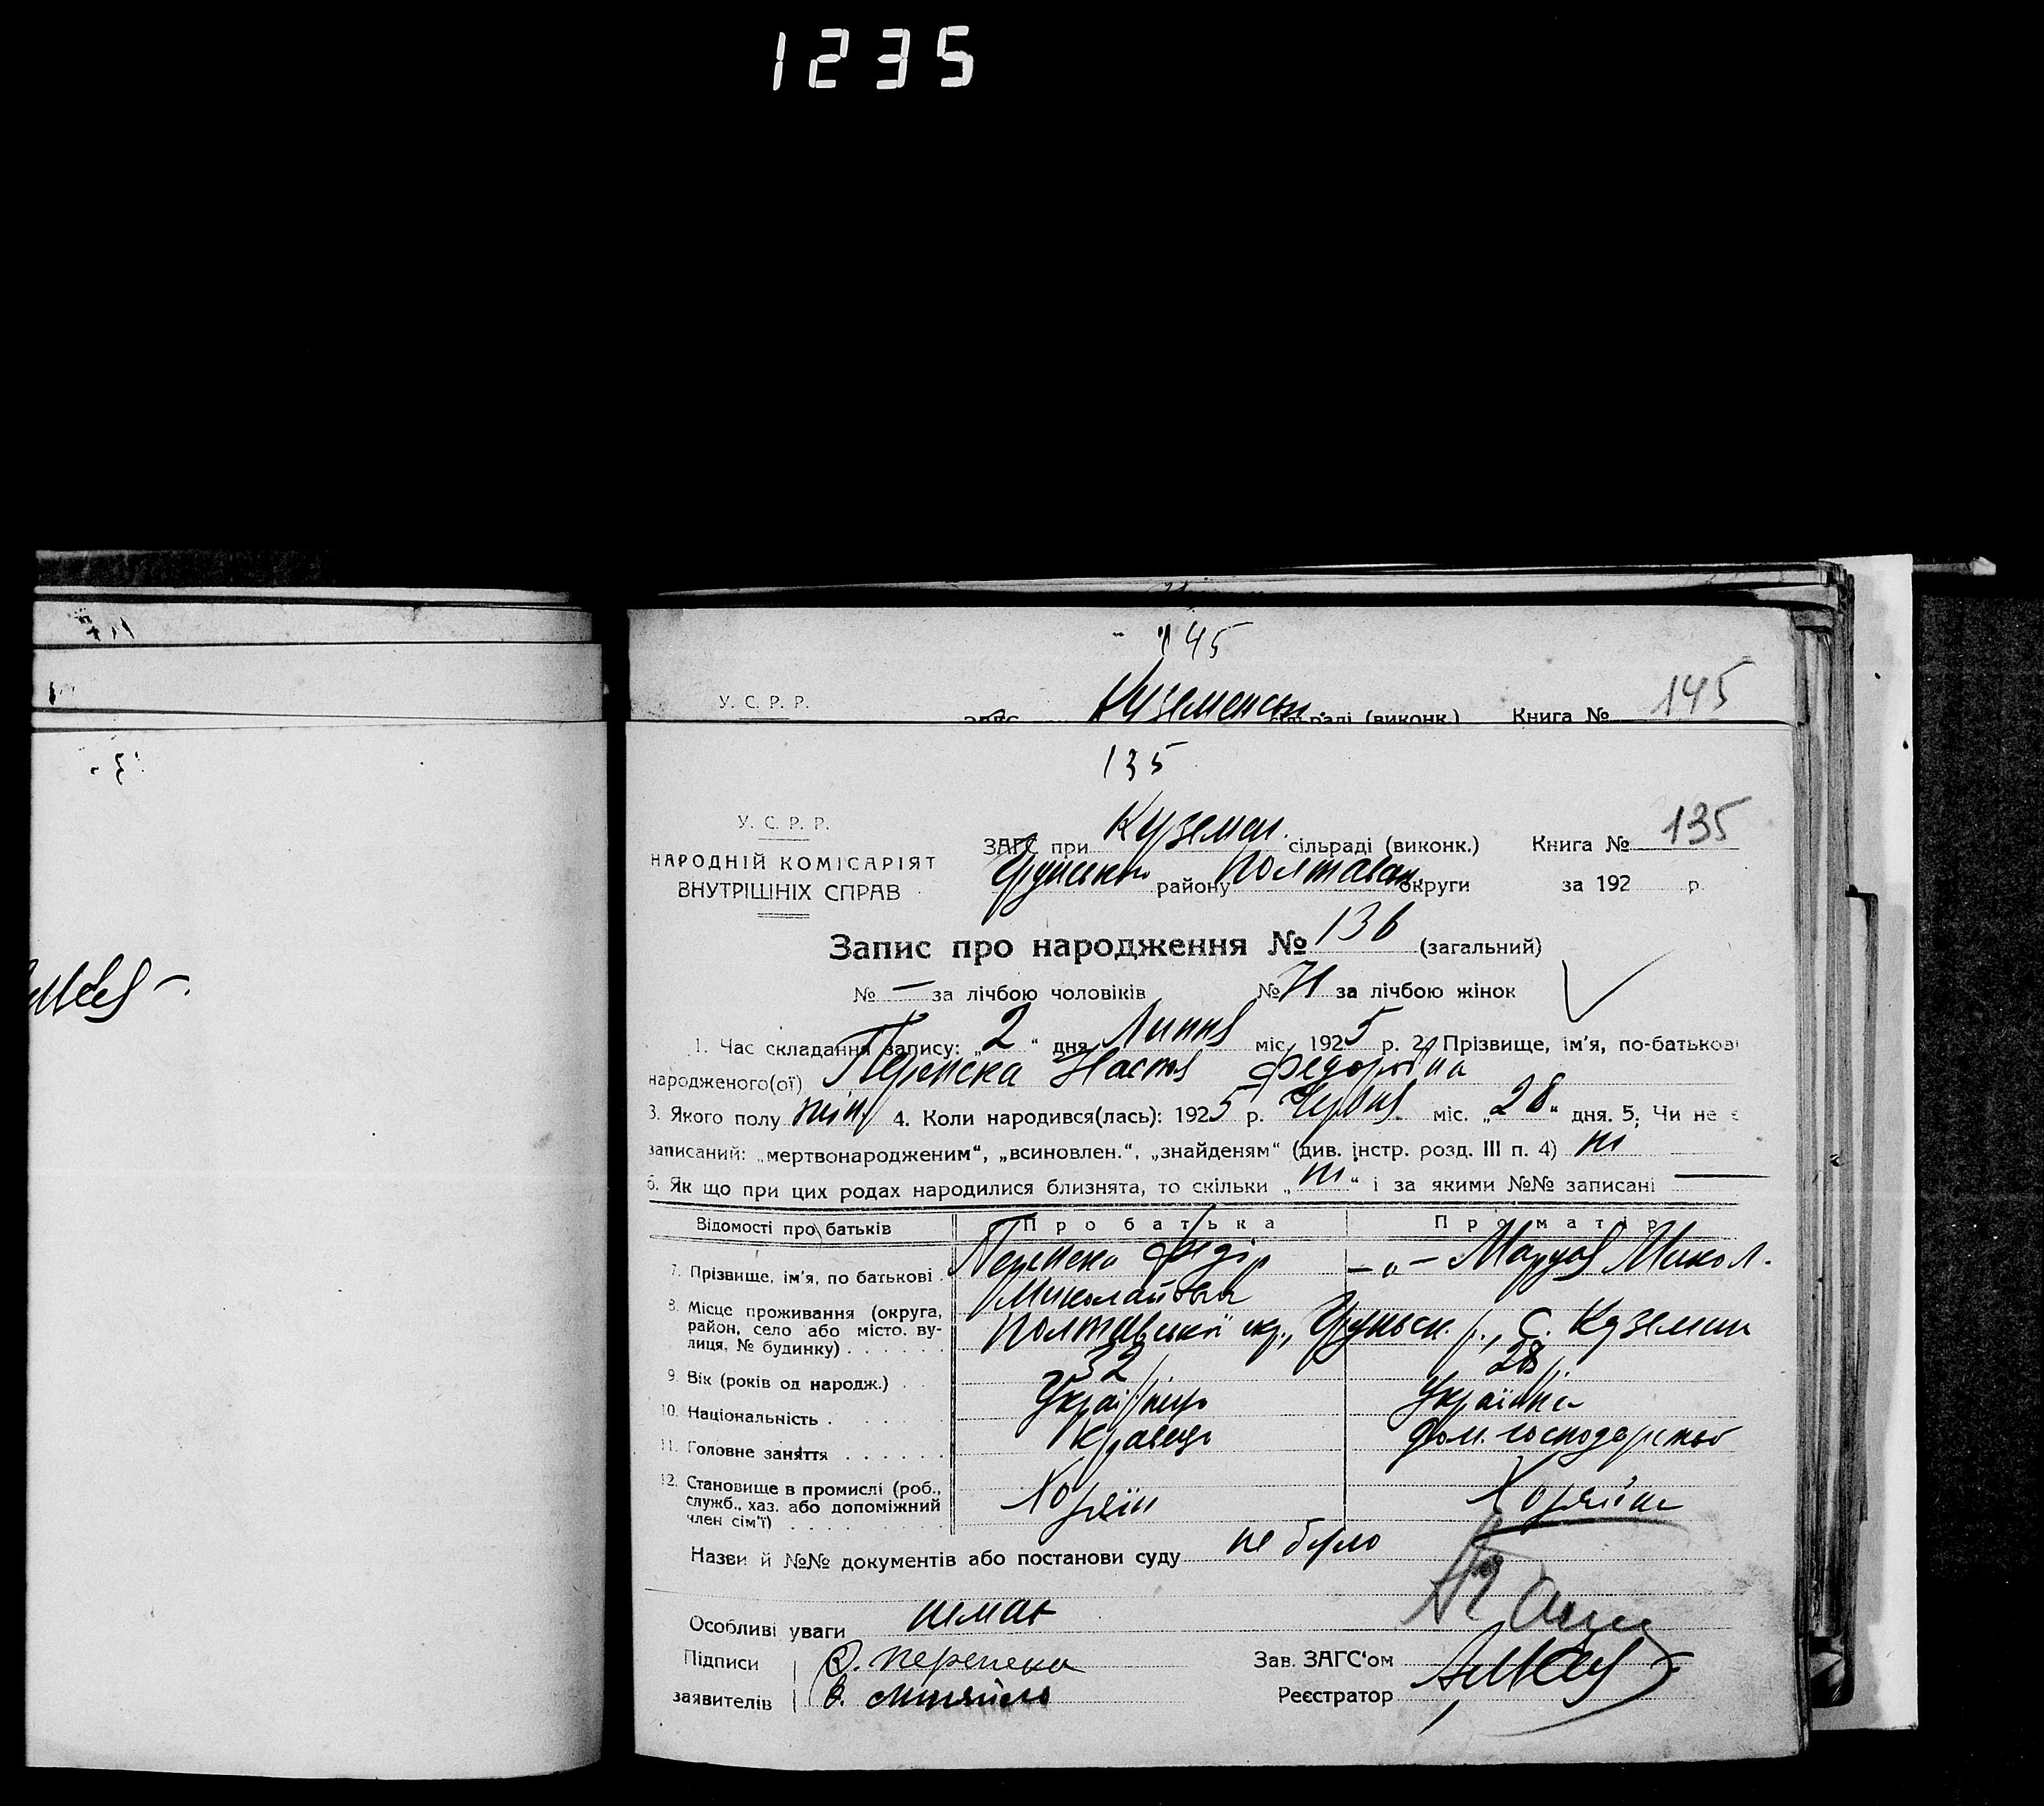 1235
145
У. С. Р. Р.
Куземенськ. сільраді (виконк.) Книга № 145
135
У. С. Р. Р.
ЗАГС при Куземен. сільраді (виконк.) Книга № 135
НАРОДНІЙ КОМІСАРІЯТ
ВНУТРІШНІХ СПРАВ
Грунськ. району Полтавськ. округи за 192 р.
Запис про народження № 136 (загальний)
№ — за лічбою чоловіків № 71 за лічбою жінок
1. Час складання запису: „2“ дня Липня міс. 1925 р. 2. Прізвище, ім'я, по-батькові
народженого(ої) Перепека Настя Федорівна
3. Якого полу жін. 4. Коли народився(лась): 1925 р. Червня міс. „28“ дня. 5. Чи не є
записаний: „мертвонародженим“, „всиновлен.“, „знайденям“ (див. інстр. розд. III п. 4) ні
6. Як що при цих родах народилися близнята, то скільки „ні“ і за якими №№ записані —
Відомості про батьків Про батька Про матір
7. Прізвище, ім'я, по батькові Перепека Федір Миколайович —„— Маруся Микол.
8. Місце проживання (округа, район, село або місто, вулиця, № будинку) Полтавської окр., Груньськ. р., с. Куземин
9. Вік (років од народж.) 32 28
10. Національність Українець Українка
11. Головне заняття Кравець Дом. господарство
12. Становище в промислі (роб., служб., хаз. або допоміжний член сім'ї) Хозяїн Хозяйка
Назви й №№ документів або постанови суду не було
Особливі уваги немає
Підписи Ф. Перепека Зав. ЗАГС'ом
заявителів Реєстратор